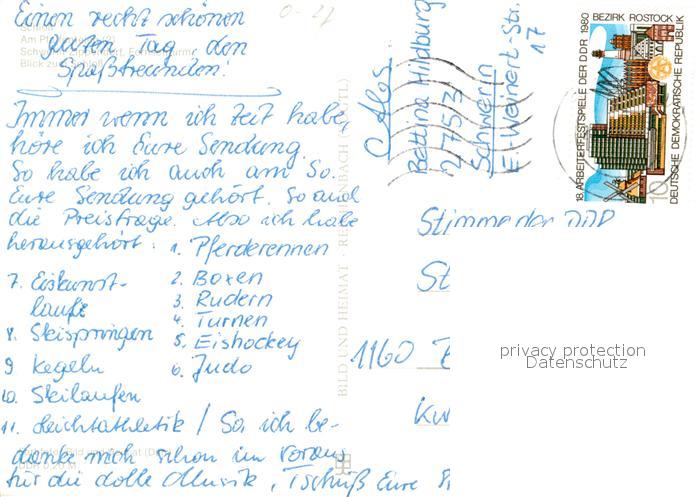 Einen recht schönen
guten Tag den
Spaßfreunden!
Immer wenn ich Zeit habe,
höre ich Eure Sendung.
So habe ich auch am So.
Eure Sendung gehört. So auch
die Preisfrage. Also ich habe
herausgehört: 1. Pferderennen
2. Boxen
3. Rudern
4. Turnen
5. Eishockey
6. Judo
7. Eiskunst-
laufe
8. Skispringen
9. Kegeln
10. Skilaufen
11. Leichtathletik / So, ich be-
danke mich schon im voraus
für die dolle Musik, Tschüß Eure
Abs.
Bettina Hildburg
2753
Schwerin
E.-Weinert-Str.
17
Stimme der DDR
1160
BILD UND HEIMAT · REICHENBACH (VOGTL)
18. ARBEITERFESTSPIELE DER DDR 1980 BEZIRK ROSTOCK
DEUTSCHE DEMOKRATISCHE REPUBLIK
10
privacy protection
Datenschutz